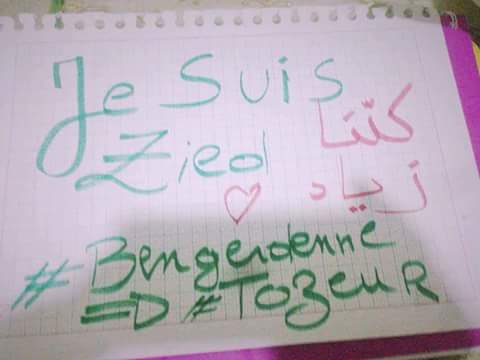 Je Suis
Zied
كلنا
زياد
#Bengerdenne
=D #Tozeur